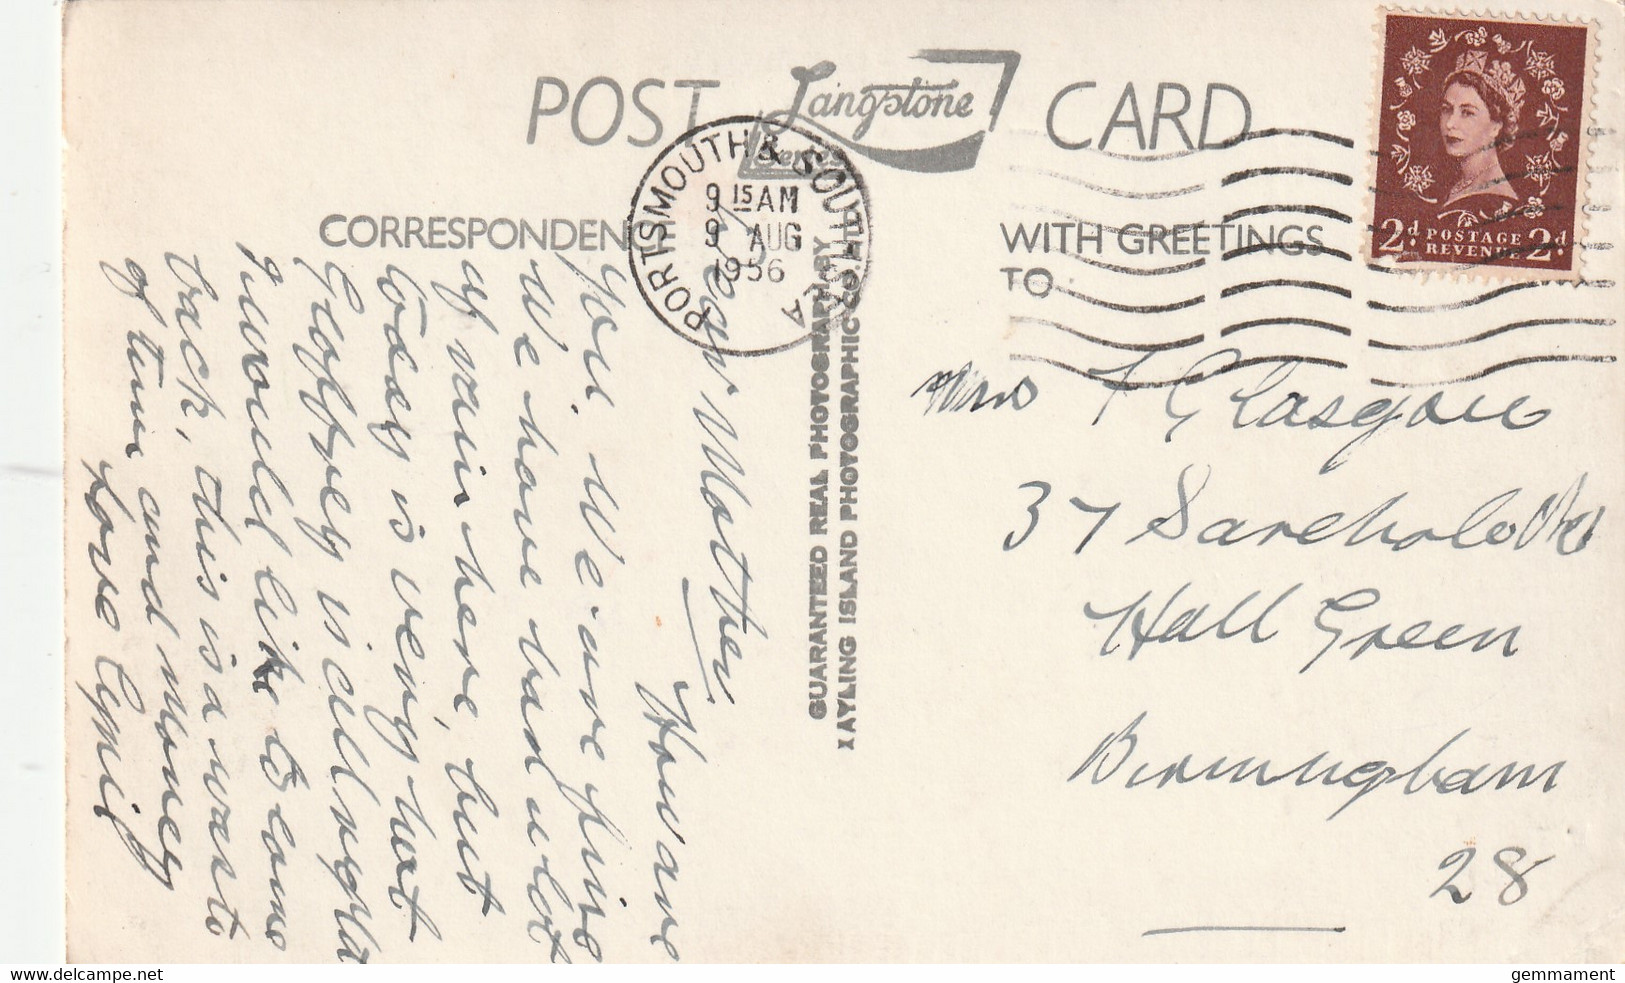 POST CARD
Langstone
Series
PORTSMOUTH & SOUTHSEA
9 15 AM
9 AUG
1956
A
2d POSTAGE 2d
REVENUE
CORRESPONDEN
WITH GREETINGS
TO
GUARANTEED REAL PHOTOGRAPH BY
AYLING ISLAND PHOTOGRAPHIC CO. LTD.
Dear Mother,
How are
you. We are fine
We have had a lot
of rain here, but
today is very hot
Geoffrey is all right
I would like to come
back, this is a waste
of time and money
Love
Mrs F Glasgow
37 Sarehole Rd
Hall Green
Birmingham
28
gemmament